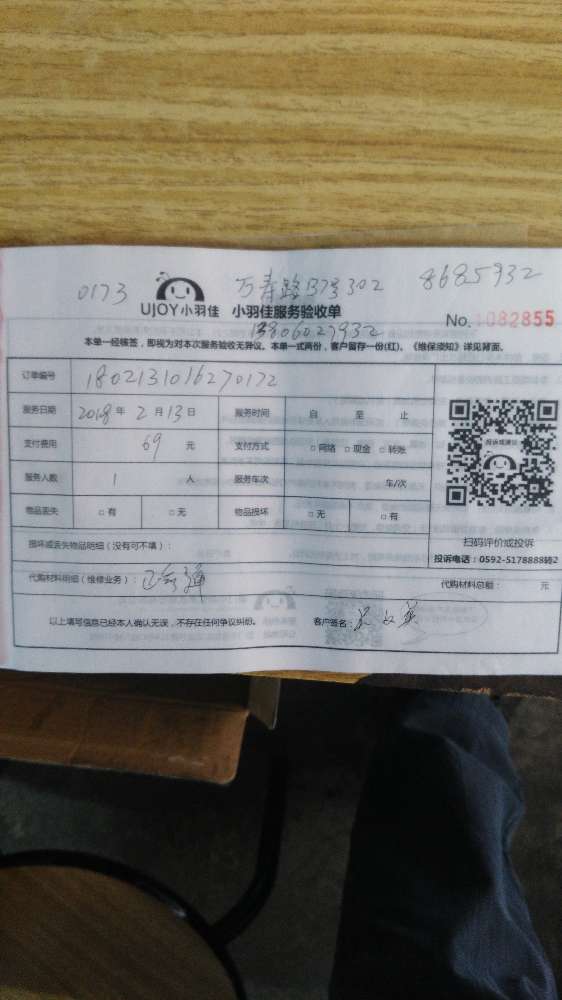 0173 万寿路137号302 8685932
UJOY小羽佳 小羽佳服务验收单
13806027932 No. 1082855
本单一经核签，即视为对本次服务验收无异议。本单一式两份，客户留存一份(红)。《维保须知》详见背面。
订单编号 1802131016270172
服务日期 2018年2月13日 服务时间 自 至 止
支付费用 69 元 支付方式 □网络 □现金 □转账
服务人数 1 人 服务车次 车/次
物品丢失 □有 □无 物品损坏 □无 □有
扫码评价或投诉
投诉电话：0592-5178888转2
损坏或丢失物品明细（没有可不填）：
代购材料明细（维修业务）： 代购材料总额： 元
以上填写信息已经本人确认无误，不存在任何争议纠纷。 客户签名：